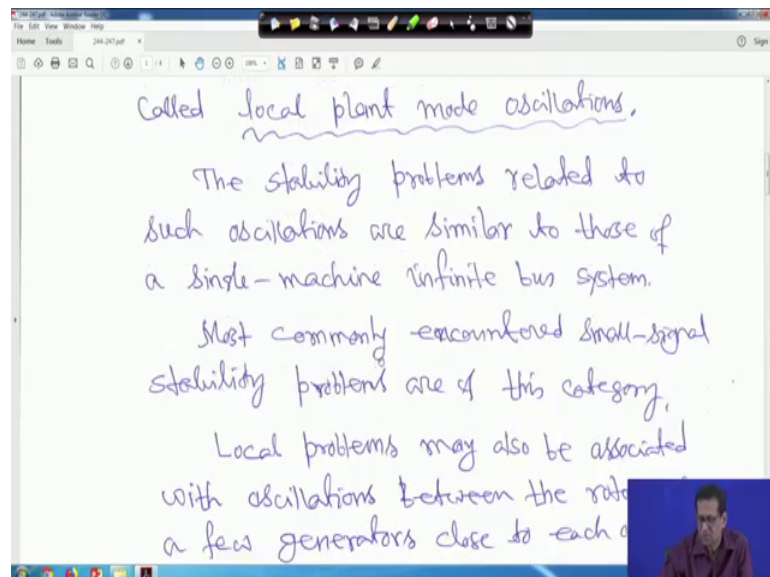 244-247.pdf - Adobe Acrobat Reader DC
File Edit View Window Help
Home Tools 244-247.pdf × Sign
1 / 4
Called local plant mode oscillations.
The stability problems related to
such oscillations are similar to those of
a single-machine infinite bus system.
Most commonly encountered small-signal
stability problems are of this category.
Local problems may also be associated
with oscillations between the
a few generators close to each